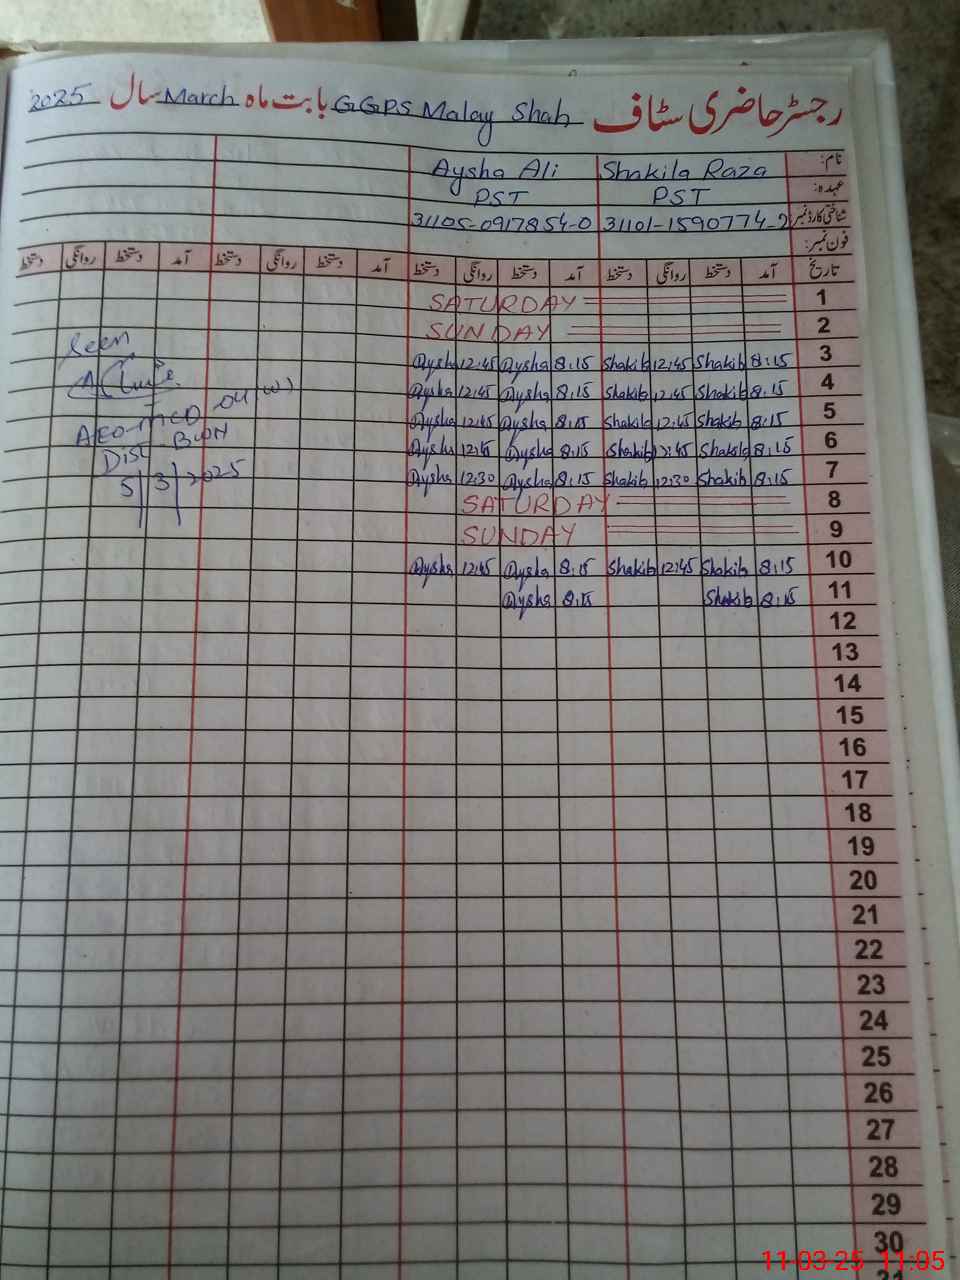 رجسٹر حاضری سٹاف GGPS Malay Shah بابت ماہ March سال 2025
نام: Shakila Raza Aysha Ali
عہدہ: PST PST
شناختی کارڈ نمبر: 31101-1590774-2 31105-0917854-0
فون نمبر:
تاریخ آمد دستخط روانگی دستخط آمد دستخط روانگی دستخط آمد دستخط روانگی دستخط آمد دستخط روانگی دستخط
1 SATURDAY
2 SUNDAY
3 8:15 Shakila 12:45 Shakila 8:15 Aysha 12:45 Aysha
4 8:15 Shakila 12:45 Shakila 8:15 Aysha 12:45 Aysha
5 8:15 Shakila 12:45 Shakila 8:15 Aysha 12:45 Aysha
6 8:15 Shakila 12:45 Shakila 8:15 Aysha 12:45 Aysha
7 8:15 Shakila 12:30 Shakila 8:15 Aysha 12:30 Aysha
8 SATURDAY
9 SUNDAY
10 8:15 Shakila 12:45 Shakila 8:15 Aysha 12:45 Aysha
11 8:15 Shakila 8:15 Aysha
12
13
14
15
16
17
18
19
20
21
22
23
24
25
26
27
28
29
30
31
Seen
AEO (W)
Dist BWN
5/3/2025
11-03-25 11:05